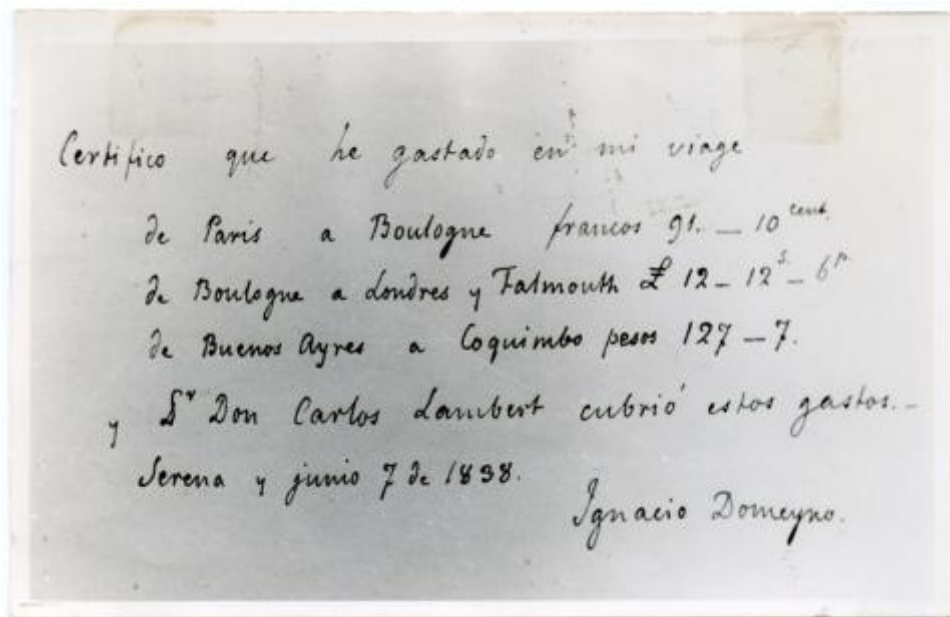 Certifico que he gastado en mi viage
de Paris a Boulogne francos 91. — 10 cent.
de Boulogne a Londres y Falmouth £ 12 — 12 s. — 6 p.
de Buenos Ayres a Coquimbo pesos 127 — 7.
y Sr Don Carlos Lambert cubrió estos gastos. —
Serena y junio 7 de 1838.
Ignacio Domeyko.